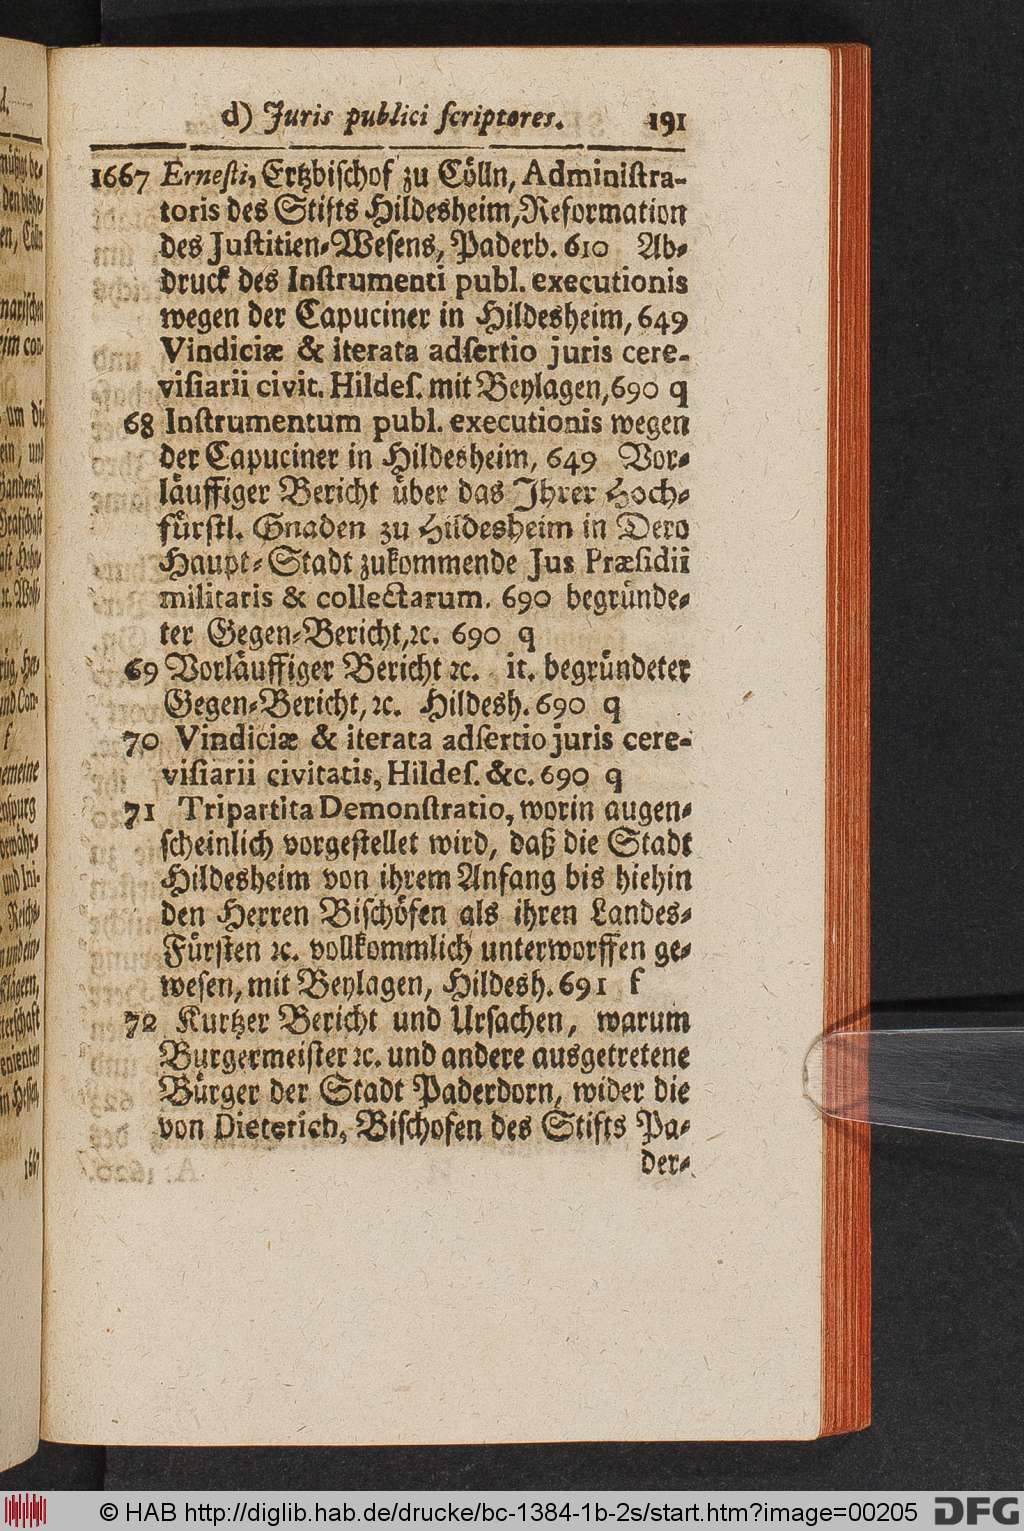 d) Juris publici ſcriptores. 191
1667 Erneſti, Ertzbiſchof zu Cölln, Adminiſtra-
toris des Stifts Hildesheim, Reformation
des Juſtitien-Weſens, Paderb. 610 Ab-
druck des Inſtrumenti publ. executionis
wegen der Capuciner in Hildesheim, 649
Vindiciæ & iterata adſertio juris cere-
viſiarii civit. Hildeſ. mit Beylagen, 690 q
68 Inſtrumentum publ. executionis wegen
der Capuciner in Hildesheim, 649 Vor-
läuffiger Bericht über das Ihrer Hoch-
fürſtl. Gnaden zu Hildesheim in Dero
Haupt-Stadt zukommende Jus Præſidii
militaris & collectarum. 690 begründe-
ter Gegen-Bericht, ꝛc. 690 q
69 Vorläuffiger Bericht ꝛc. it. begründeter
Gegen-Bericht, ꝛc. Hildesh. 690 q
70 Vindiciæ & iterata adſertio juris cere-
viſiarii civitatis, Hildeſ. &c. 690 q
71 Tripartita Demonſtratio, worin augen-
ſcheinlich vorgeſtellet wird, daß die Stadt
Hildesheim von ihrem Anfang bis hiehin
den Herren Biſchöfen als ihren Landes-
Fürſten ꝛc. vollkommlich unterworffen ge-
weſen, mit Beylagen, Hildesh. 691 f
72 Kurtzer Bericht und Urſachen, warum
Burgermeiſter ꝛc. und andere ausgetretene
Bürger der Stadt Paderdorn, wider die
von Dieterich, Biſchofen des Stifts Pa-
der-
© HAB http://diglib.hab.de/drucke/bc-1384-1b-2s/start.htm?image=00205 DFG